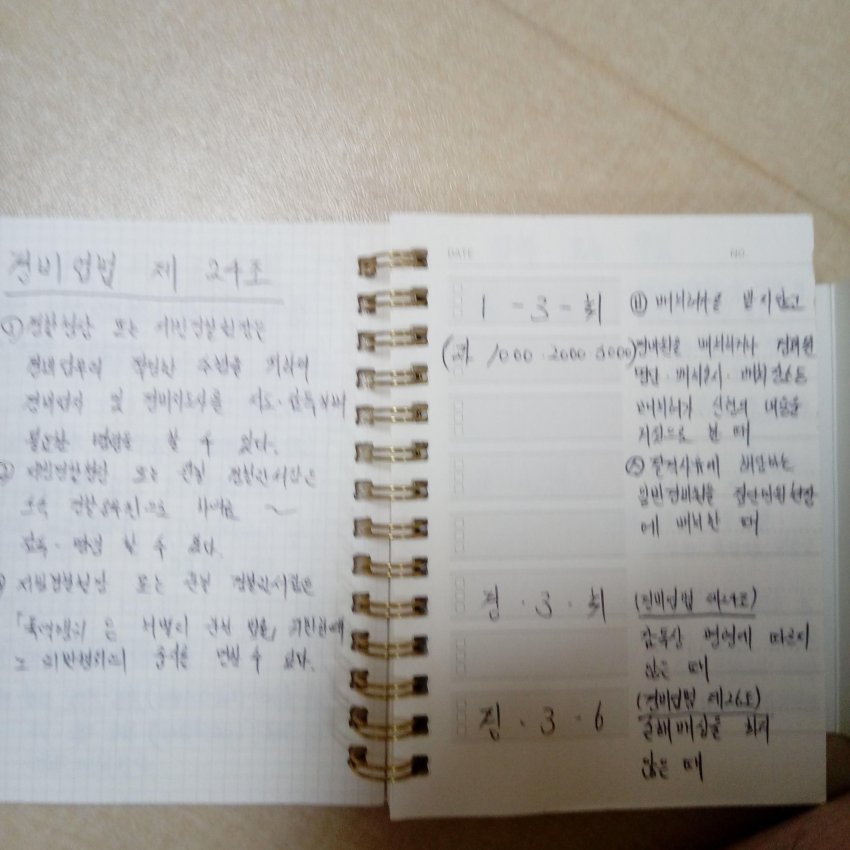 경비업법 제 24조
① 경찰청장 또는 시·도경찰청장은
경비업무의 적정한 수행을 위하여
경비업자 및 경비지도사를 지도·감독하며
필요한 명령을 할 수 있다.
② 시·도경찰청장 또는 관할 경찰관서장은
소속 경찰공무원으로 하여금 ~
감독·명령 할 수 있다.
시·도경찰청장 또는 관할 경찰관서장은
위반행위의 중지를 명할 수 있다.
DATE NO.
1 - 3 - 취
(과 1000·2000·3000)
⑪ 배치허가를 받지않고
경비원을 배치하거나 경비원
명단·배치일시·배치장소 등
배치허가 신청의 내용을
거짓으로 한 때
결격사유에 해당하는
일반경비원을 집단민원현장
에 배치한 때
경 · 3 · 취
(경비업법 제24조)
감독상 명령에 따르지
않은 때
경 · 3 · 6
(경비업법 제26조)
손해배상을 하지
않은 때